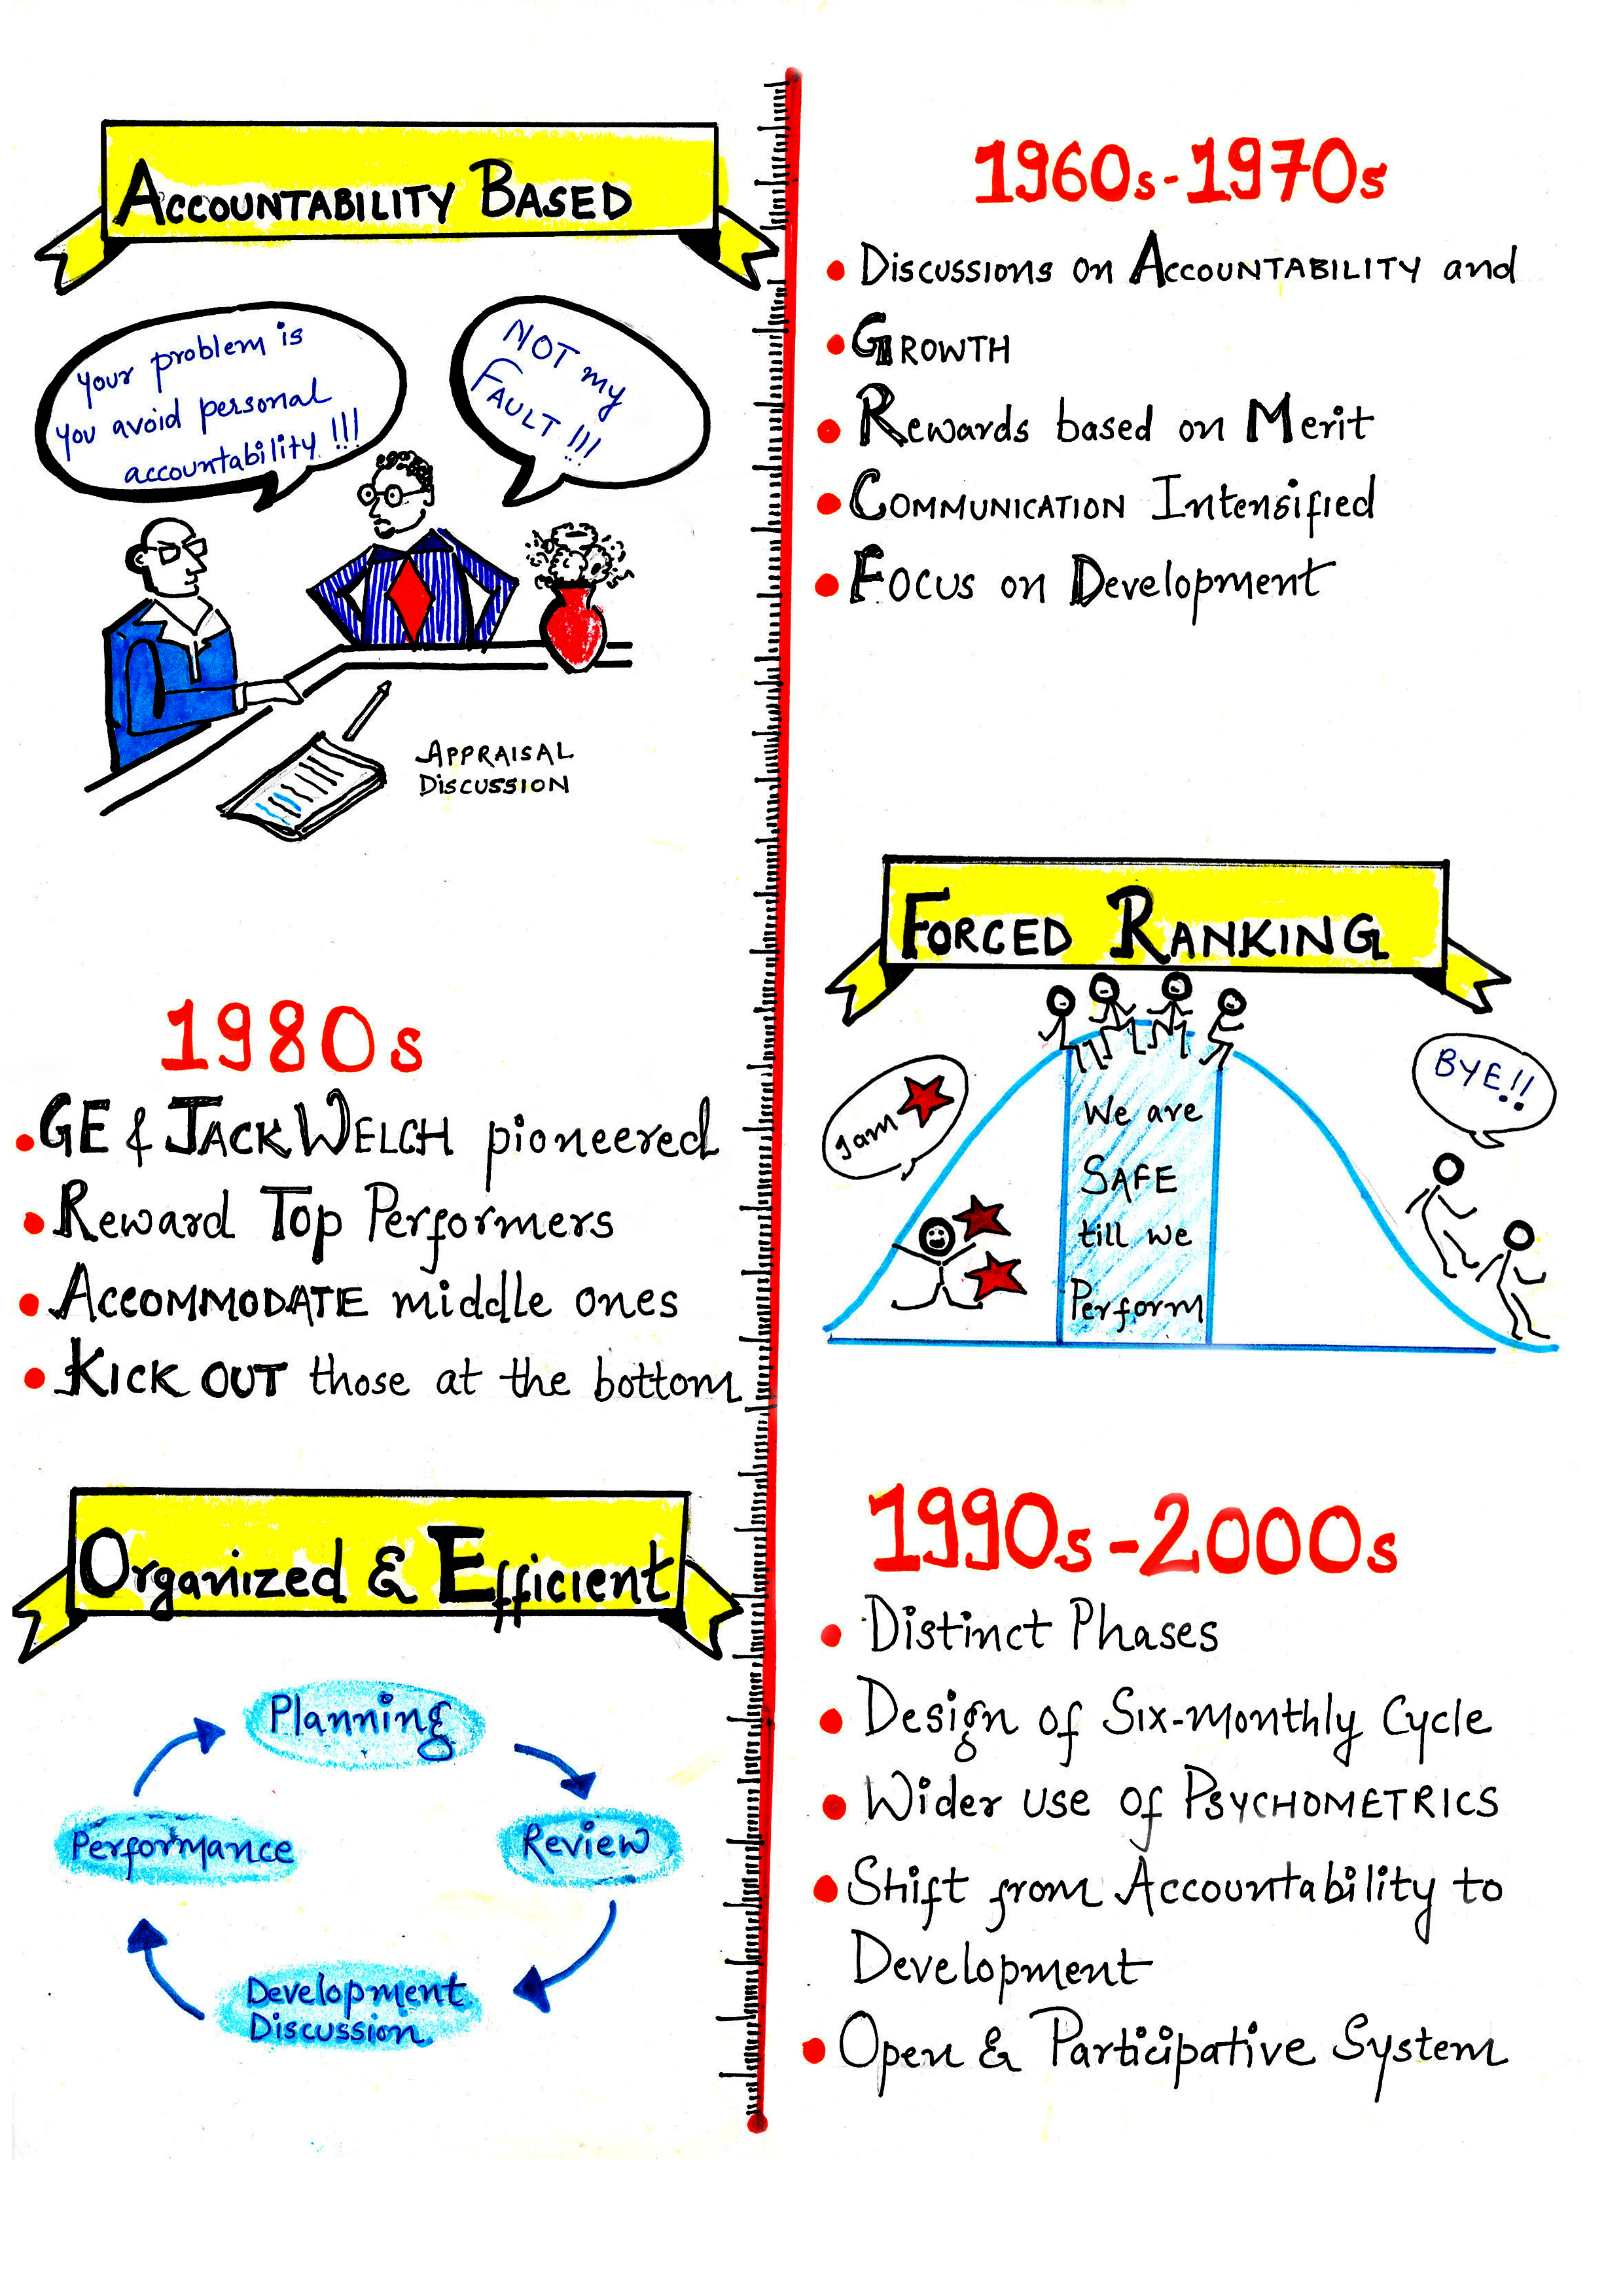 ACCOUNTABILITY BASED
your problem is
you avoid personal
accountability !!!
NOT my
FAULT !!!
APPRAISAL
DISCUSSION
1960s-1970s
• Discussions on ACCOUNTABILITY and
• GROWTH
• Rewards based on Merit
• COMMUNICATION Intensified
• Focus on Development
1980s
• GE & JACK WELCH pioneered
• Reward Top Performers
• ACCOMMODATE middle ones
• KICK OUT those at the bottom
FORCED RANKING
I am
We are
SAFE
till we
Perform
BYE!!
Organized & Efficient
Planning
Review
Development
Discussion
Performance
1990s-2000s
• Distinct Phases
• Design of Six-monthly Cycle
• Wider use of PSYCHOMETRICS
• Shift from Accountability to
Development
• Open & Participative System